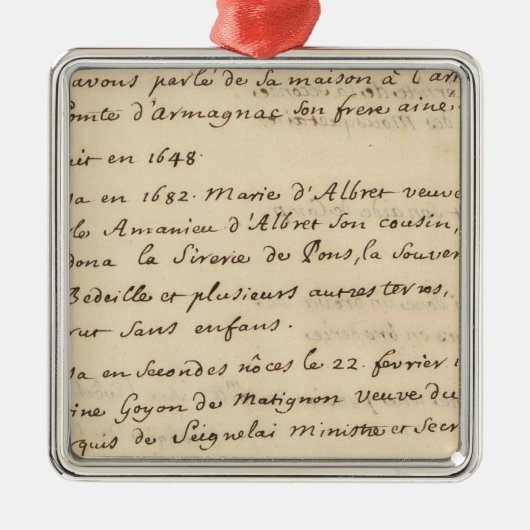 avons parlé de sa maison à l'ar
omte d'Armagnac son frere ainé
uit en 1648.
sa en 1682. Marie d'Albret veuve
le Amanieu d'Albret son cousin,
dona la Sirerie de Pons, la souver
Bedeille et plusieurs autres terres,
rut sans enfans.
sa en secondes nôces le 22. fevrier
ine Goyon de Matignon veuve du
quis de Seignelai Ministre et Secr